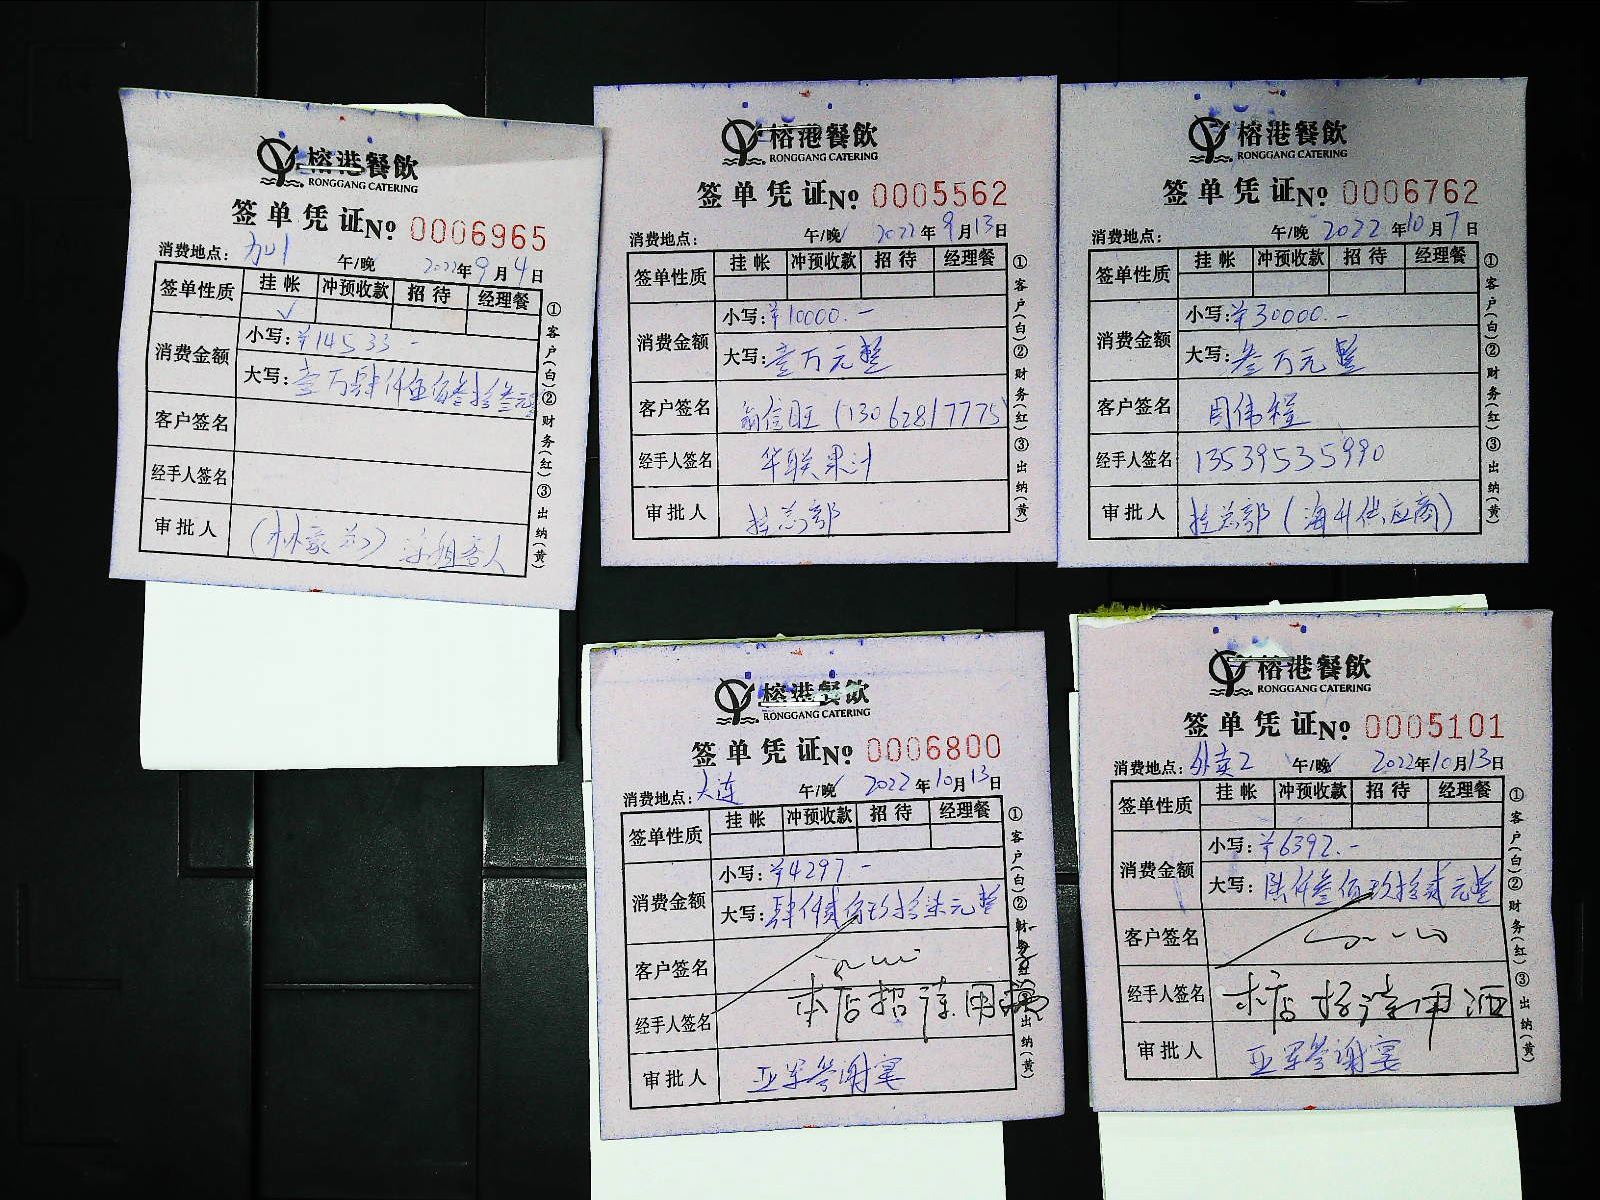 榕港餐飲
RONGGANG CATERING
签单凭证 No 0006965
消费地点: 午/晚 2022年9月4日
签单性质 挂帐 冲预收款 招待 经理餐
✓
消费金额 小写:¥14533.-
大写:壹万肆仟伍佰叁拾叁元整
客户签名
经手人签名
审批人
①客户(白)②财务(红)③出纳(黄)
榕港餐飲
RONGGANG CATERING
签单凭证 No 0005562
消费地点: 午/晚 2022年9月13日
签单性质 挂帐 冲预收款 招待 经理餐
消费金额 小写:¥10000.-
大写:壹万元整
客户签名 翁信旺(13062817775)
经手人签名 华联果汁
审批人 挂总部
①客户(白)②财务(红)③出纳(黄)
榕港餐飲
RONGGANG CATERING
签单凭证 No 0006762
消费地点: 午/晚 2022年10月7日
签单性质 挂帐 冲预收款 招待 经理餐
消费金额 小写:¥30000.-
大写:叁万元整
客户签名 周伟程
经手人签名 13539535990
审批人 挂总部(海外供应商)
①客户(白)②财务(红)③出纳(黄)
榕港餐飲
RONGGANG CATERING
签单凭证 No 0006800
消费地点:大连 午/晚 2022年10月13日
签单性质 挂帐 冲预收款 招待 经理餐
消费金额 小写:¥4297.-
大写:肆仟贰佰玖拾柒元整
客户签名
经手人签名 本店招待用
审批人 亚军答谢宴
①客户(白)②财务(红)③出纳(黄)
榕港餐飲
RONGGANG CATERING
签单凭证 No 0005101
消费地点:外卖2 午/晚 2022年10月13日
签单性质 挂帐 冲预收款 招待 经理餐
消费金额 小写:¥6392.-
大写:陆仟叁佰玖拾贰元整
客户签名
经手人签名 本店招待用酒
审批人 亚军答谢宴
①客户(白)②财务(红)③出纳(黄)